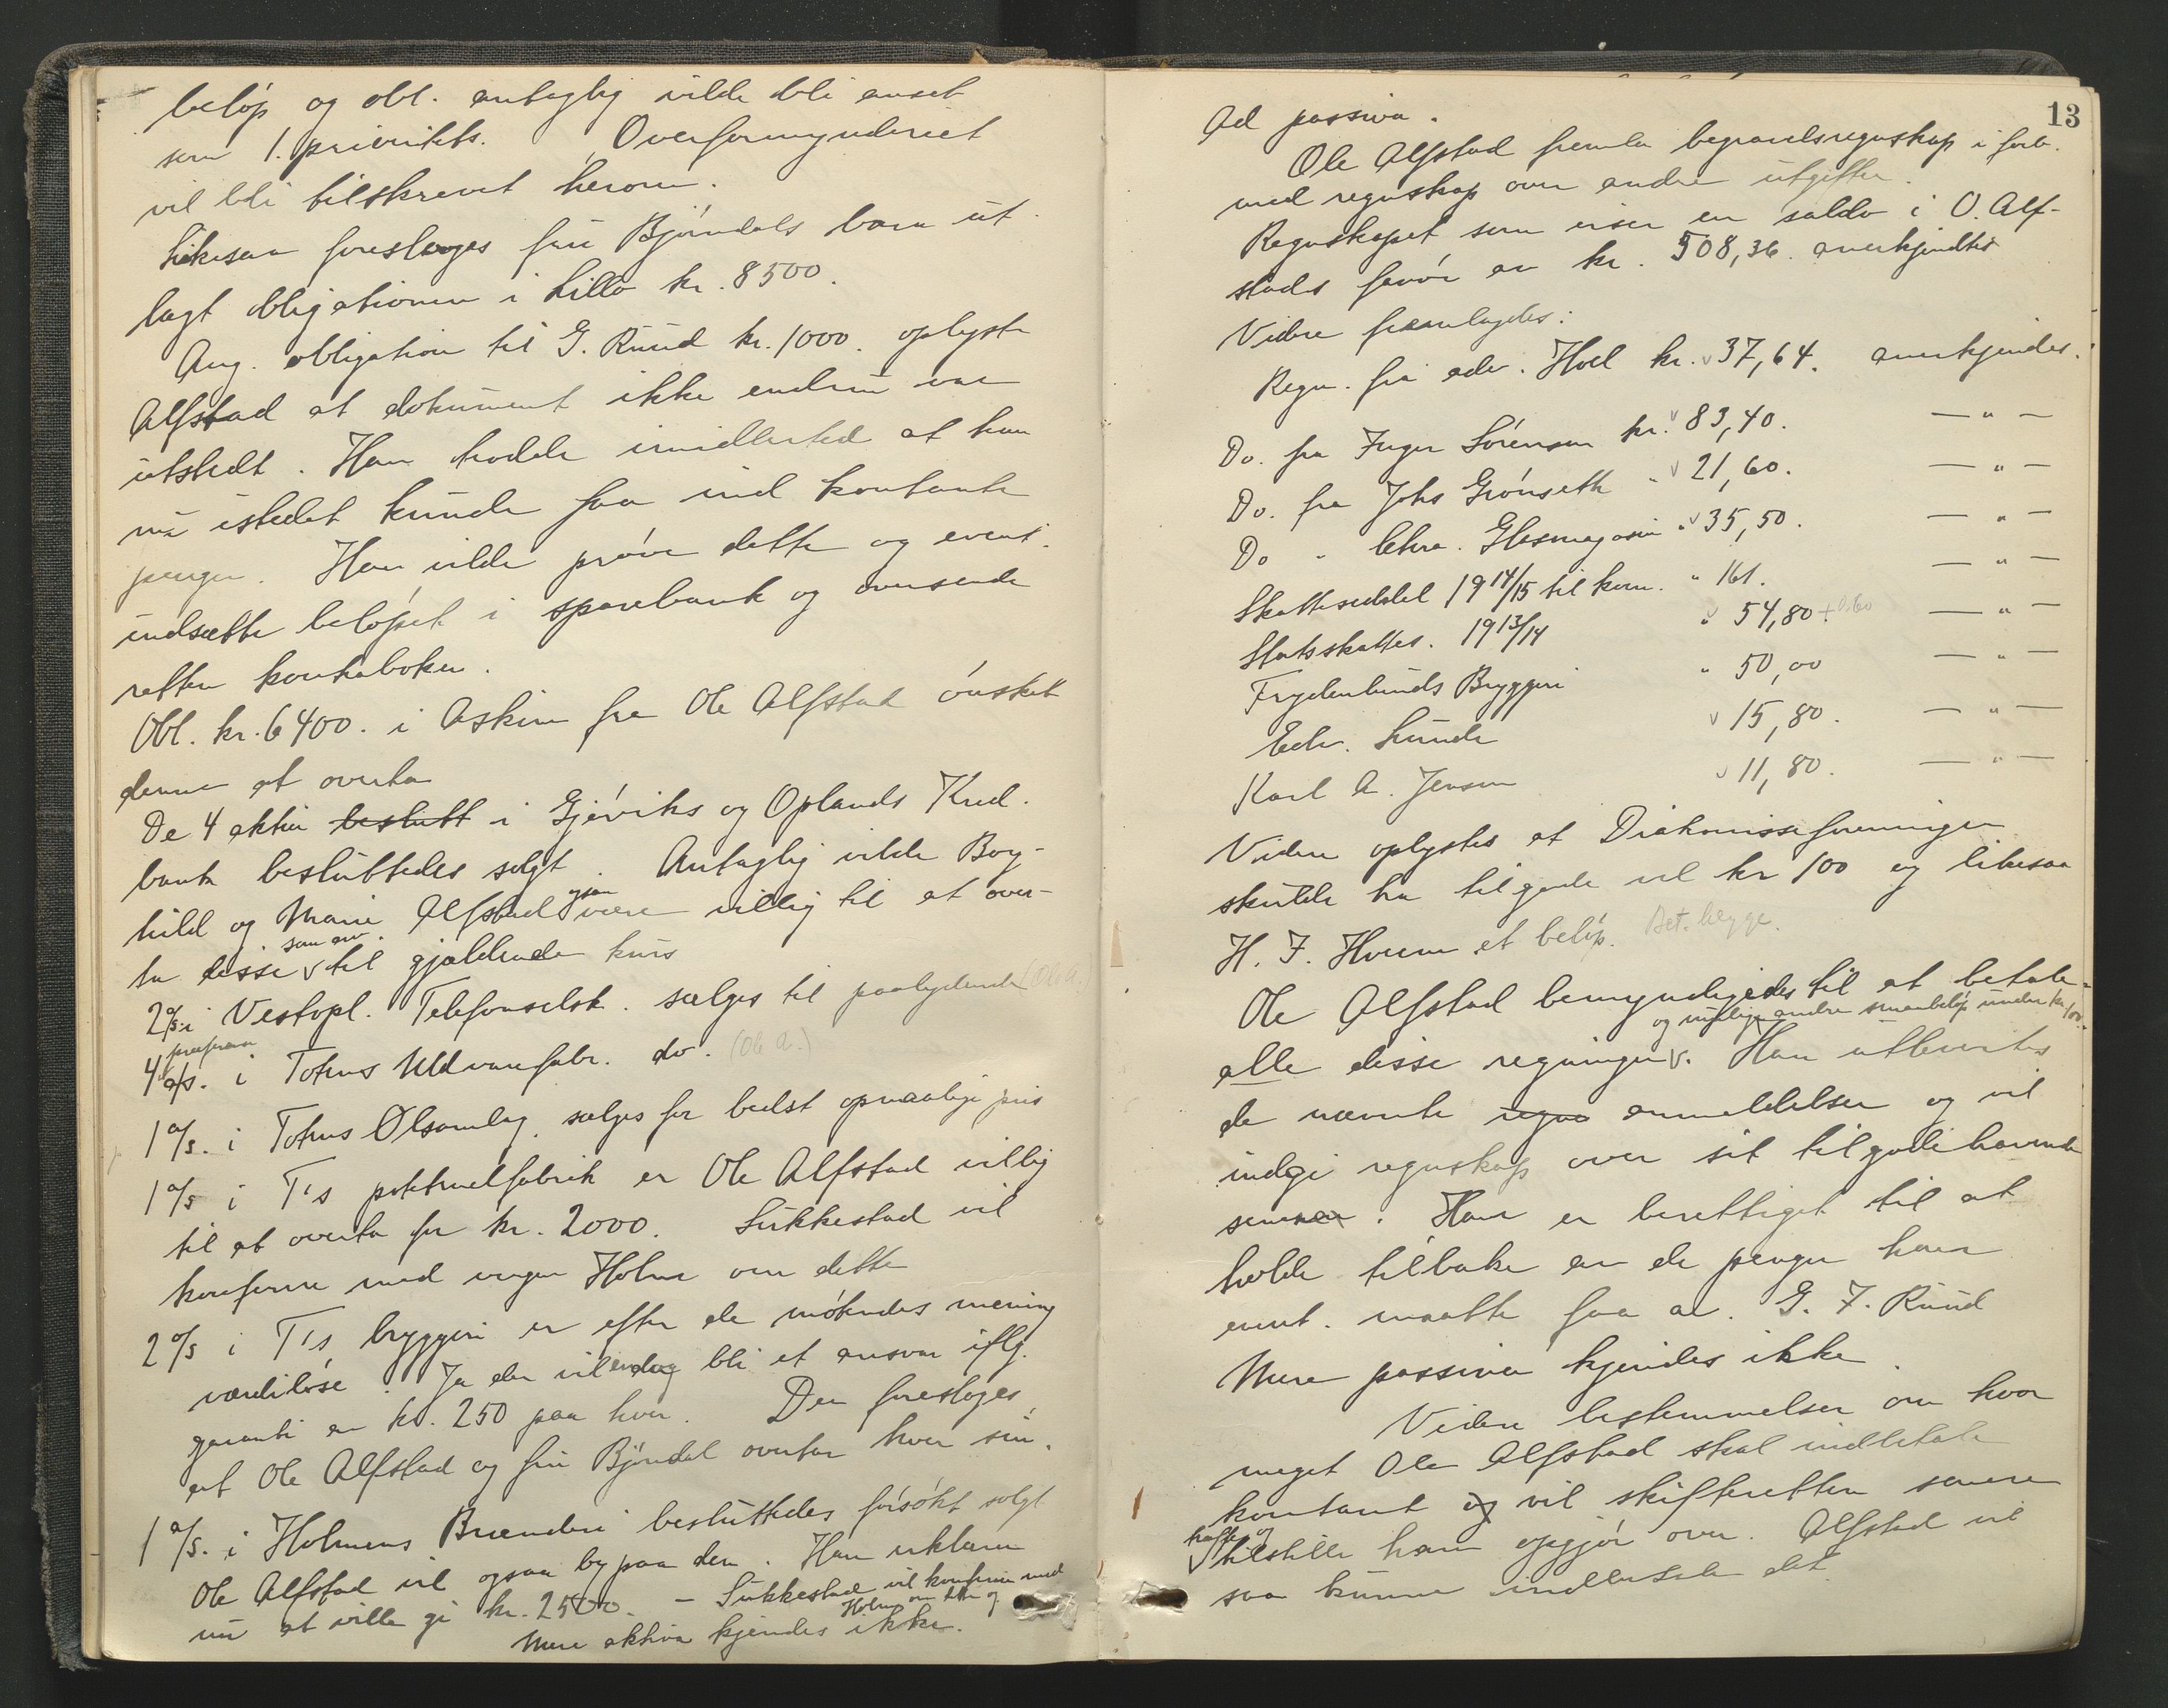 beløp og obl. antaglig vilde bli anset
som 1. prioritets. Overformynderiet
vil bli tilskrevet herom.
Likesaa foreslaaes fru Bjørndals barn ut-
lagt obligationen i Lilla kr. 8500.
Ang. obligation til G. Ruud kr. 1000. oplyste
Alfstad at dokument ikke endnu var
utstedt. Han trodde imidlertid at han
nu istedet kunde faa ind kontante
penger. Han vilde prøve dette og event.
indsætte beløpet i sparebank og oversende
retten kontraboken.
Obl. kr. 6400. i Askim fra Ole Alfstad ønsket
denne at overta
De 4 aktier beslutt i Gjøviks og Oplands Kred.
bank besluttedes solgt. Antaglig vilde Borg-
hild og Marie Alfstad ogsaa være villig til at over-
ta disse som arv. til gjældende kurs
2 a/s i Vestopl. Telefonselsk. sælges til paalydende (Ole A.)
4 præferance a/s. i Totens Uldvarefabr. do. (Ole A.)
1 a/s. i Totens Ølsamlag, sælges for bedst opnaalige pris
1 a/s i T's potetmelfabrik er Ole Alfstad villig
til at overta for kr. 2000. Sukkestad vil
konferere med verger Holme om dette
2 a/s i T's bryggeri er efter de møtendes mening
værdiløse. Ja der vil endog bli et ansvar iflg.
garanti av kr. 250 paa hver. Der foreslages
at Ole Alfstad og fru Bjørndal overtar hver sin.
1 a/s. i Holmens Brænderi besluttedes forsøkt solgt
Ole Alfstad vil ogsaa by paa den. Han erklærer
nu at ville gi kr. 2500. - Sukkestad vil konferere med
Holme om dette og
Mere aktiva kjendes ikke.
13
Ad passiva.
Ole Alfstad fremla begravelsregnskap i forb.
med regnskap over andre utgifter.
Regnskapet som viser en saldo i O. Alf-
stads favør av kr. 508,36. anerkjendtes
Videre fremlagdes:
Regn. fra adv. Hoel kr. 37,64. anerkjendes.
Do. fra Inger Sørensen kr. 83,40. — " —
Do. fra Johs Grønseth " 21,60. — " —
Do " Glasmagasin " 35,50. — " —
Skatteseddel 1914/15 til kom. " 161. — " —
Statsskattes. 1913/14 " 54,80. + 0.60 — " —
Frydenlunds Bryggeri " 50,00 — " —
Edv. Lunde 15,80. — " —
Karl A. Jensen 11,80. — " —
Videre oplystes at Diakonisseforeningen
skulde ha tilgode vel kr 100 og likesaa
H. F. Hveem et beløp. Bet. begge.
Ole Alfstad bemyndigedes til at betale
og mulige andre smaabeløp under kr. 100.-
alle disse regninger. Han utlevertes
de nævnte regn anmeldelser og vil
indgi regnskap over sit tilgodehavende
senere. Han er berettiget til at
holde tilbake av de penger han
event. maatte faa av G. F. Ruud
Mere passiva kjendes ikke.
Videre bestemmelser om hvor
meget Ole Alfstad skal indbetale
kontant og vil skifteretten senere
træffe og
tilstille ham opgjør over. Alfstad vil
saa kunne indbetale det.